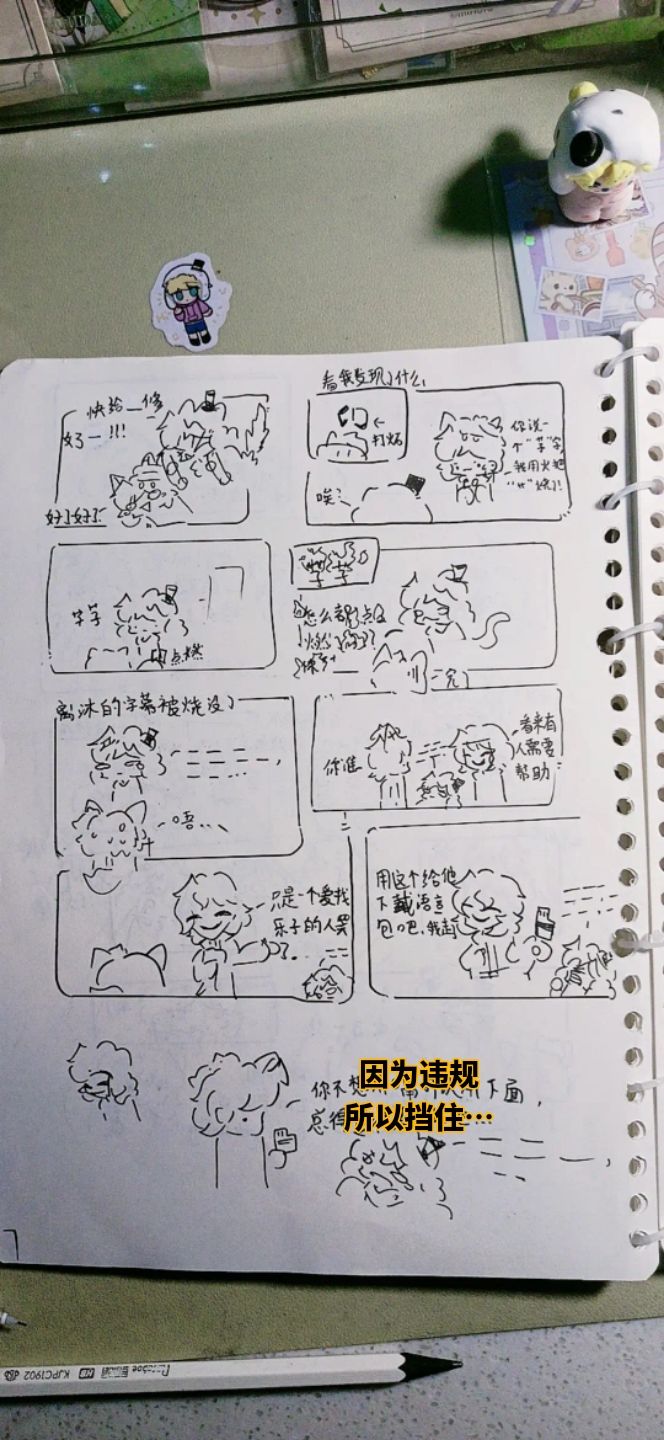 快给一修
好一!!!
好了好了
看我发现了什么
打焰
唉?
你说一
个"芋"字,
我用火把
"艹"烧了!
芋芋
点燃
怎么都点没
离沐的字幕被烧没了
唔...
你谁
看来有
人需要
帮助
只是一个爱找
乐子的人罢
了..
用这个给他
下载语言
包吧,我走
因为违规
所以挡住…
你不想
下面,
总得
KJPC1902